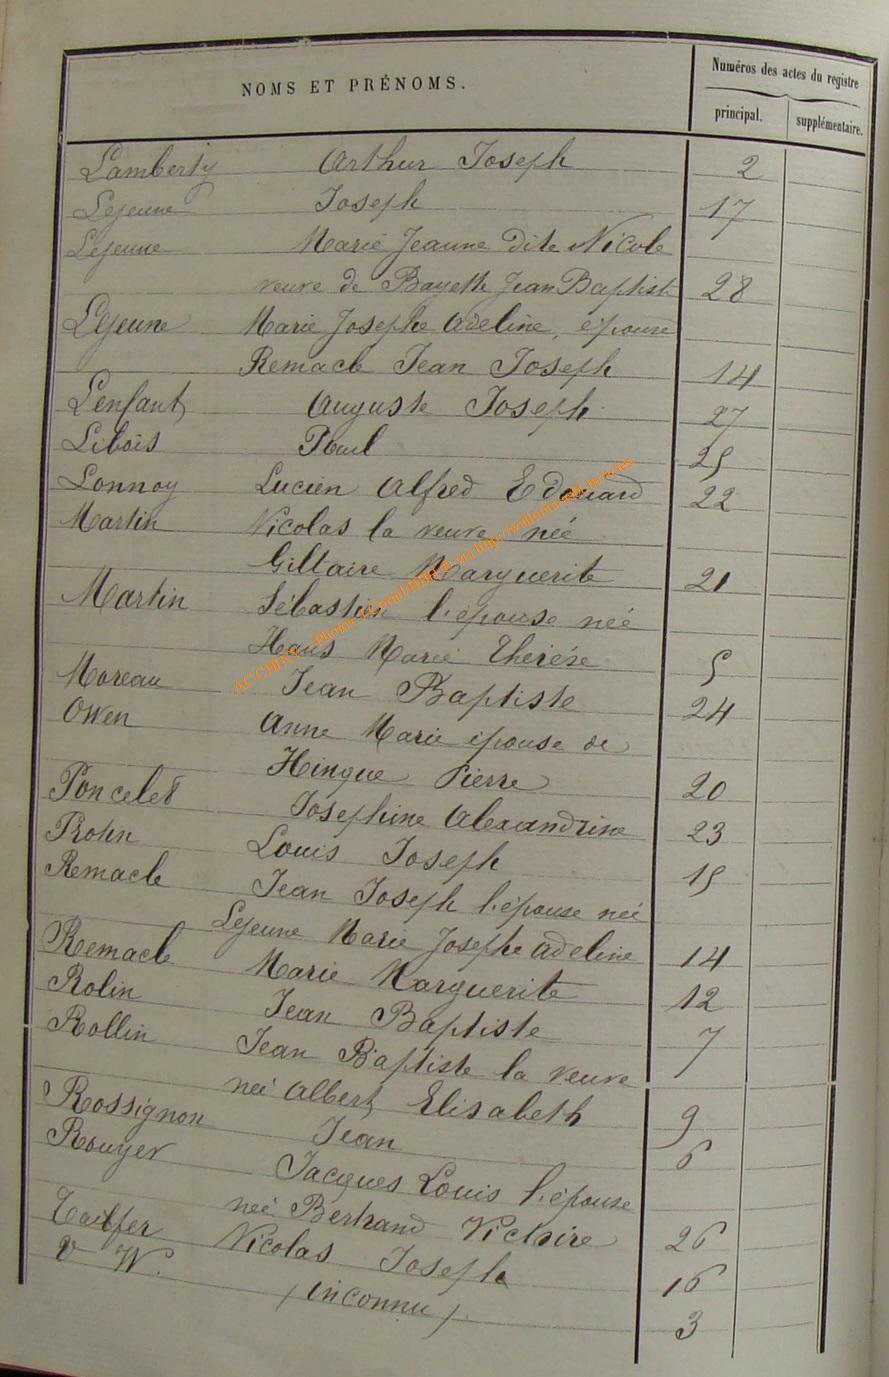 NOMS ET PRÉNOMS. Numéros des actes du registre
principal. supplémentaire.
Lamberty Arthur Joseph 2
Lejeune Joseph 17
Lejeune Marie Jeanne dite Nicole
veuve de Bayeth Jean Baptist 28
Lejeune Marie Josephe Adeline, épouse
Remacle Jean Joseph 14
Lenfant Auguste Joseph 27
Libois Paul 25
Lonnoy Lucien Alfred Edouard 22
Martin Nicolas la veuve neé
Giltaire Marguerite 21
Martin Sébastien l'épouse neé
Haus Marie Thérèse 5
Moreau Jean Baptiste 24
Owen Anne Marie épouse de
Hingue Pierre 20
Poncelet Josephine Alexandrine 23
Protin Louis Joseph 15
Remacle Jean Joseph l'épouse neé
Lejeune Marie Josephe Adeline 14
Remacle Marie Marguerite 12
Rolin Jean Baptiste 7
Rollin Jean Baptiste la veuve
neé Albert Elisabeth 9
Rossignon Jean 6
Rouyer Jacques Louis l'épouse
neé Bertrand Victoire 26
Tailfer Nicolas Joseph 16
V W. (inconnu) 3